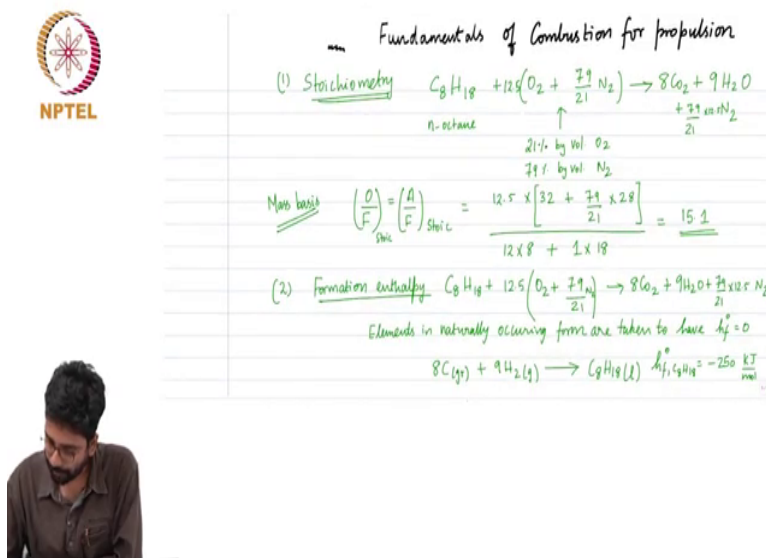 NPTEL
Fundamentals of Combustion for propulsion
(1) Stoichiometry C8H18 + 12.5(O2 + 79/21 N2) → 8CO2 + 9H2O + 79/21 x12.5 N2
n-octane
↑
21% by vol O2
79% by vol N2
Mass basis (O/F)stoic = (A/F)stoic = 12.5 × [32 + 79/21 × 28] / 12×8 + 1×18 = 15.1
(2) Formation enthalpy C8H18 + 12.5(O2 + 79/21 N2) → 8CO2 + 9H2O + 79/21 ×12.5 N2
Elements in naturally occuring form are taken to have hf° = 0
8C(gr) + 9H2(g) → C8H18(l) h°f,C8H18 = -250 kJ/mol